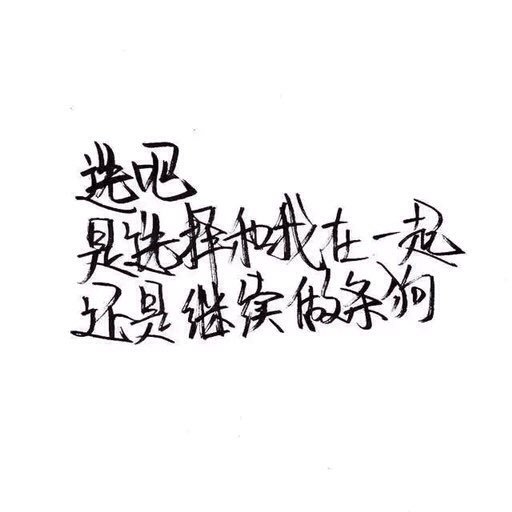 选吧
是选择和我在一起
还是继续做条狗